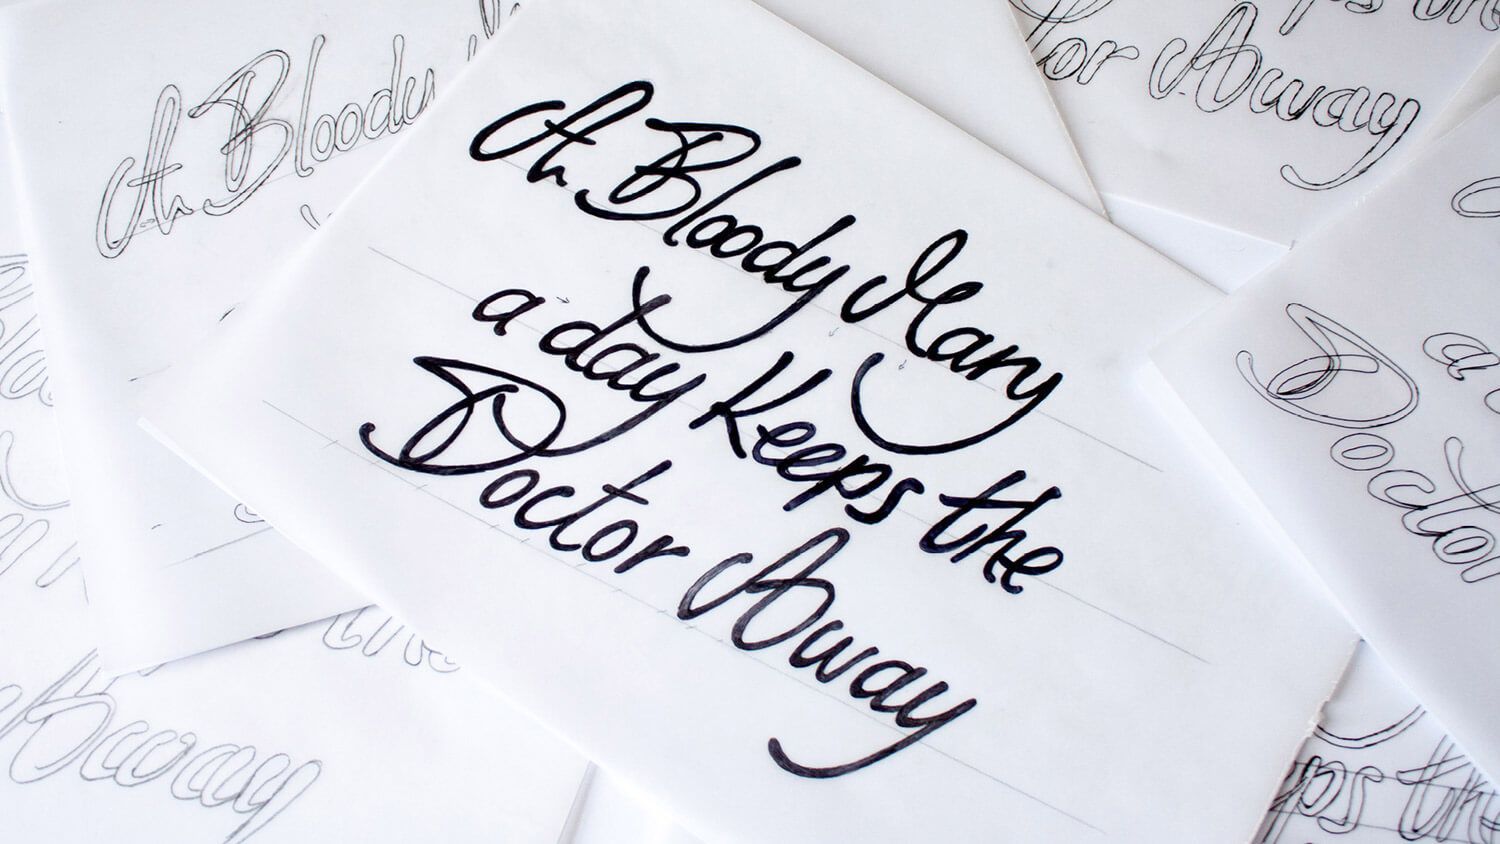 A Bloody Mary
a day Keeps the
Doctor Away
A Bloody
ps the
tor Away
a
Doctor
the
Away
ps the